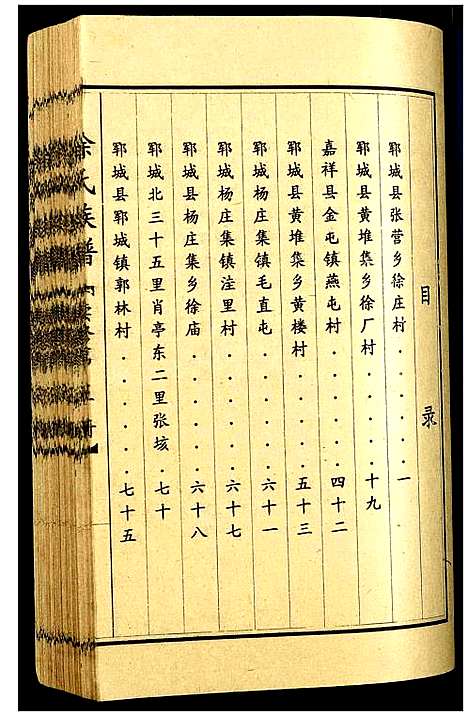 目录
郓城县张营乡徐庄村........一
郓城县黄堆集乡徐厂村......十九
嘉祥县金屯镇燕屯村......四十二
郓城县黄堆集乡黄楼村.....五十三
郓城杨庄集镇毛直屯......六十一
郓城杨庄集镇洼里村......六十七
郓城县杨庄集乡徐庙......六十八
郓城北三十五里肖亭东二里张垓.七十
郓城县郓城镇郭林村......七十五
徐氏族谱